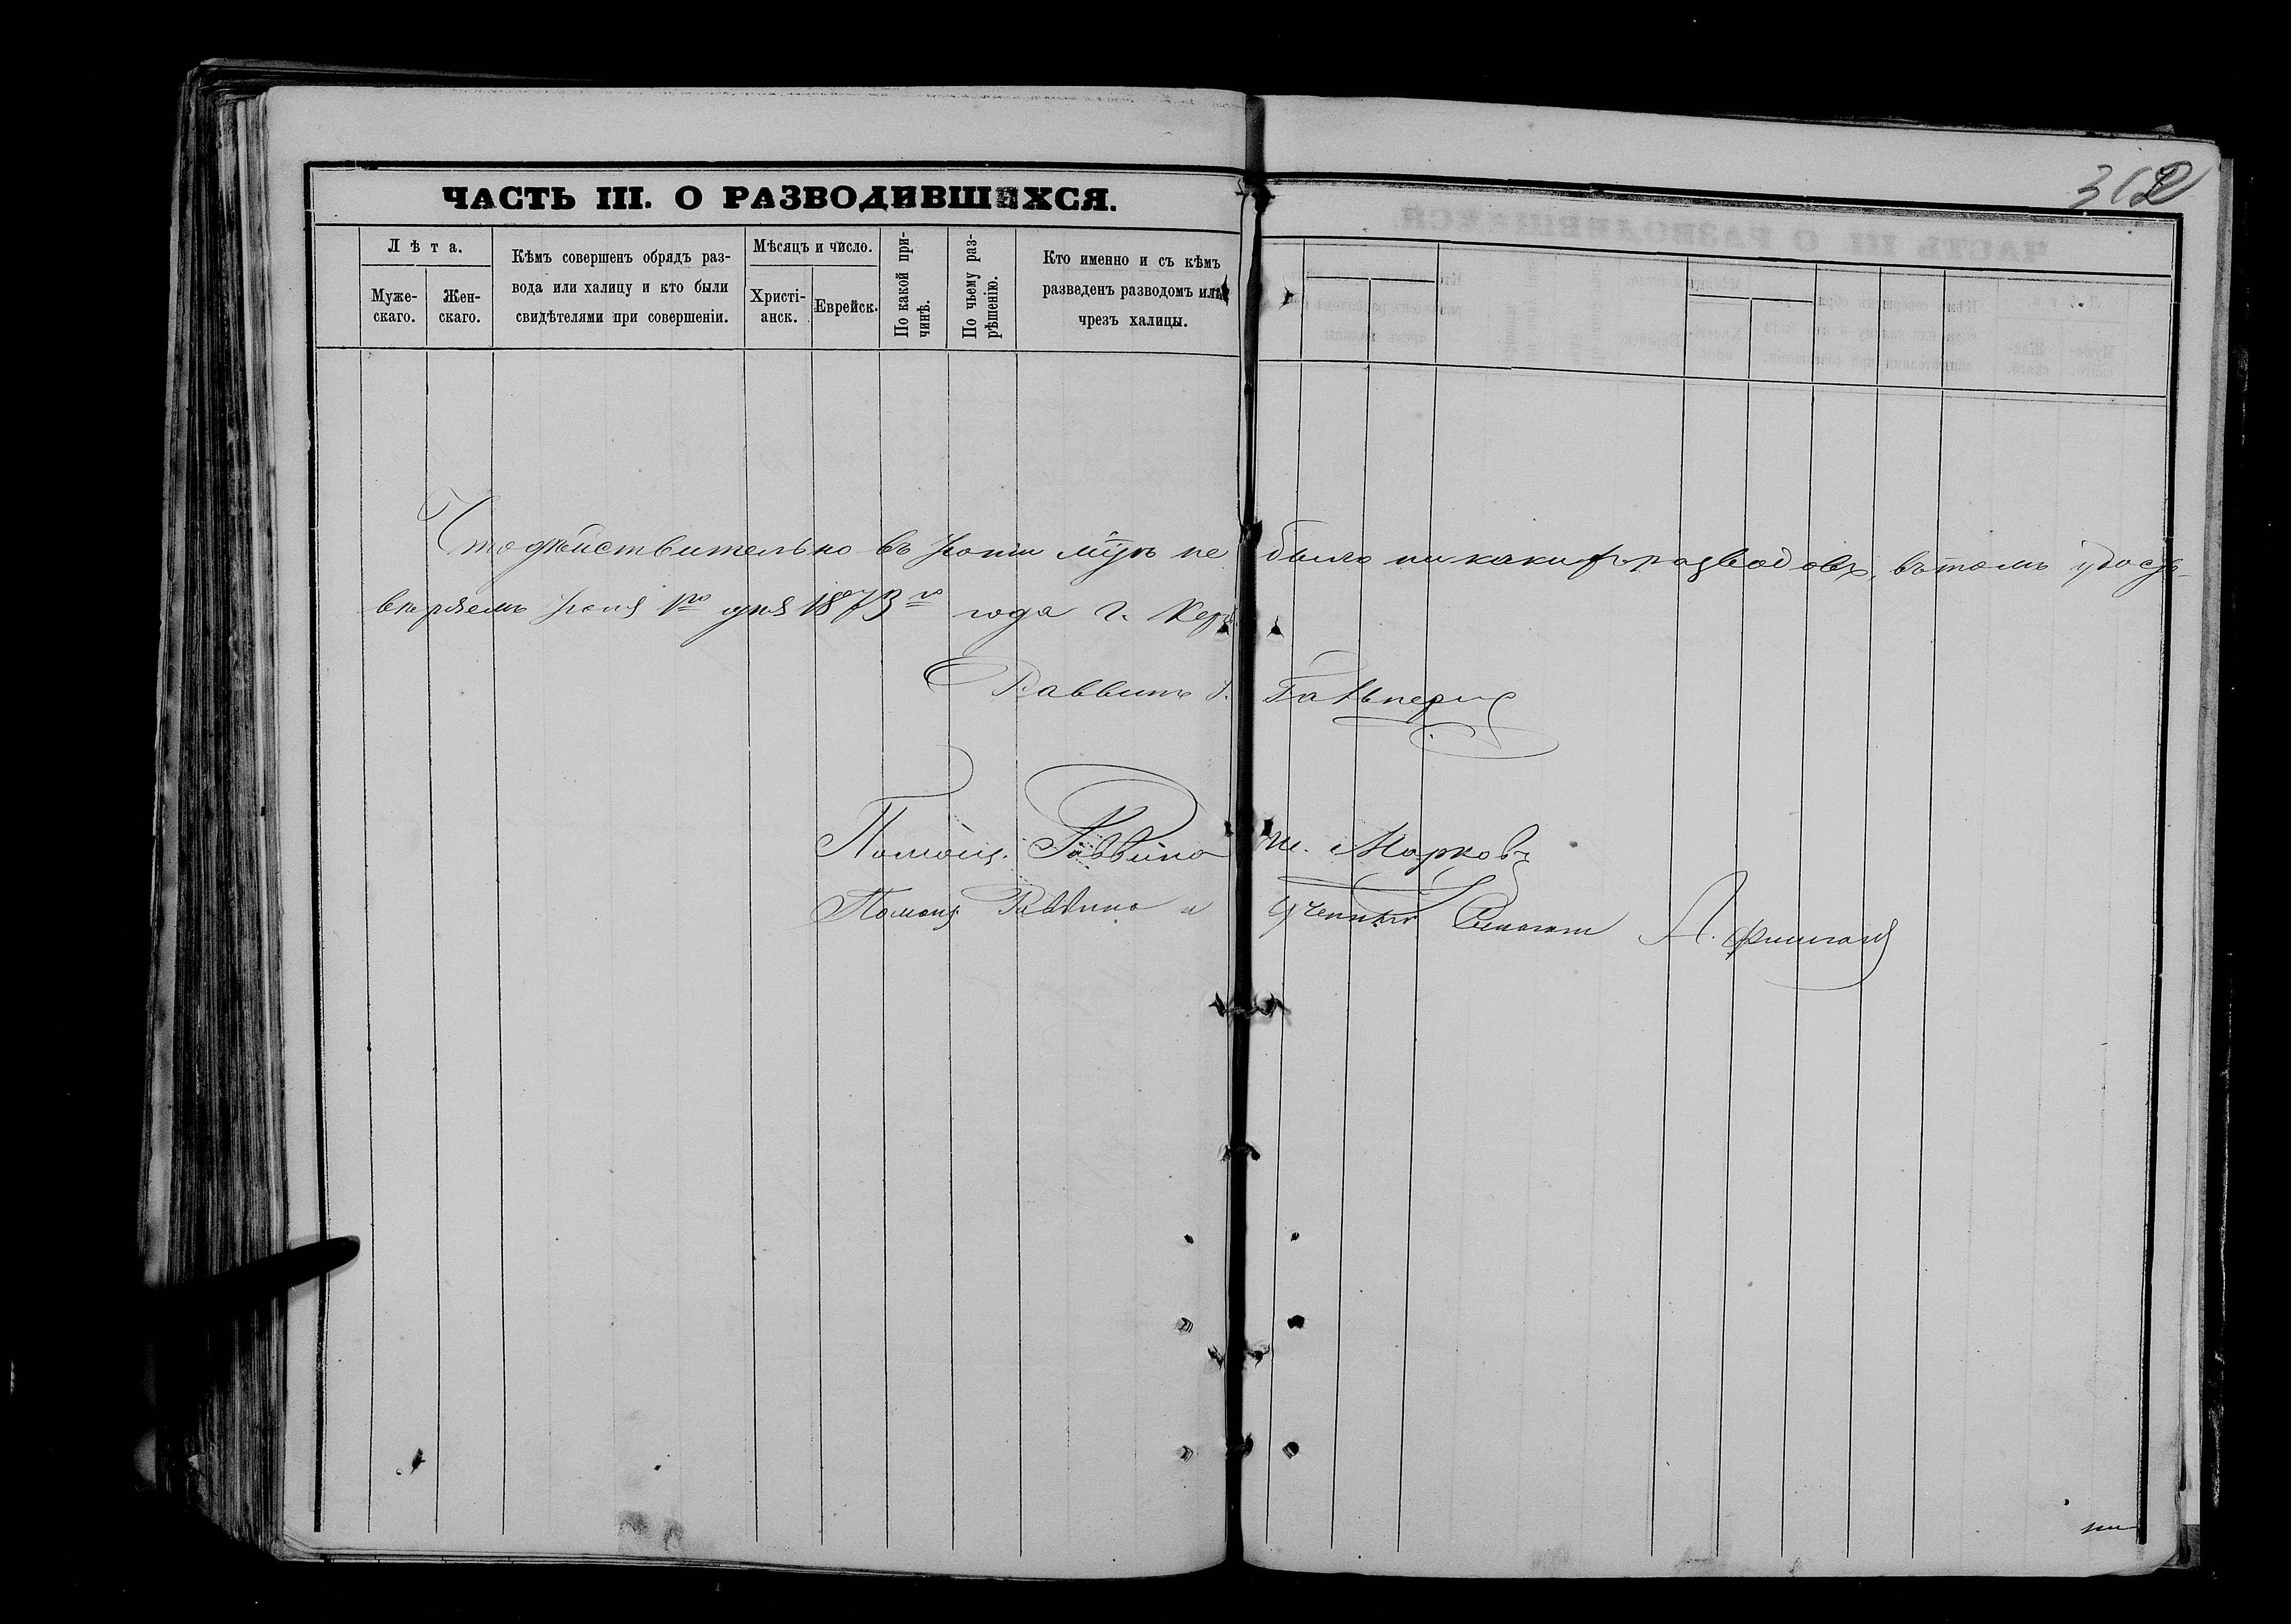 ЧАСТЬ III. О РАЗВОДИВШИХСЯ.
Лѣта.
Муже-
скаго.
Жен-
скаго.
Кѣмъ совершенъ обрядъ раз-
вода или халицу и кто были
свидѣтелями при совершеніи.
Мѣсяцъ и число.
Христі-
анск.
Еврейск.
По какой при-
чинѣ.
По чьему раз-
рѣшенію.
Кто именно и съ кѣмъ
разведенъ разводомъ или
чрезъ халицы.
Что дѣйствительно въ не было никакихъ разводовъ, въ томъ удосто-
вѣряемъ 1го дня 1873го года г.
Раввинъ Гальперинъ
Помощ. Раввина М. Марковъ
Помощ. Раввина и А.